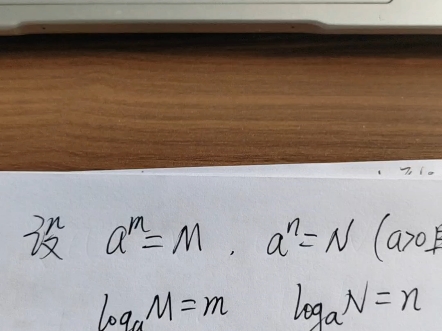 设 a^m=M , a^n=N (a>0且
log_a M=m log_a N=n